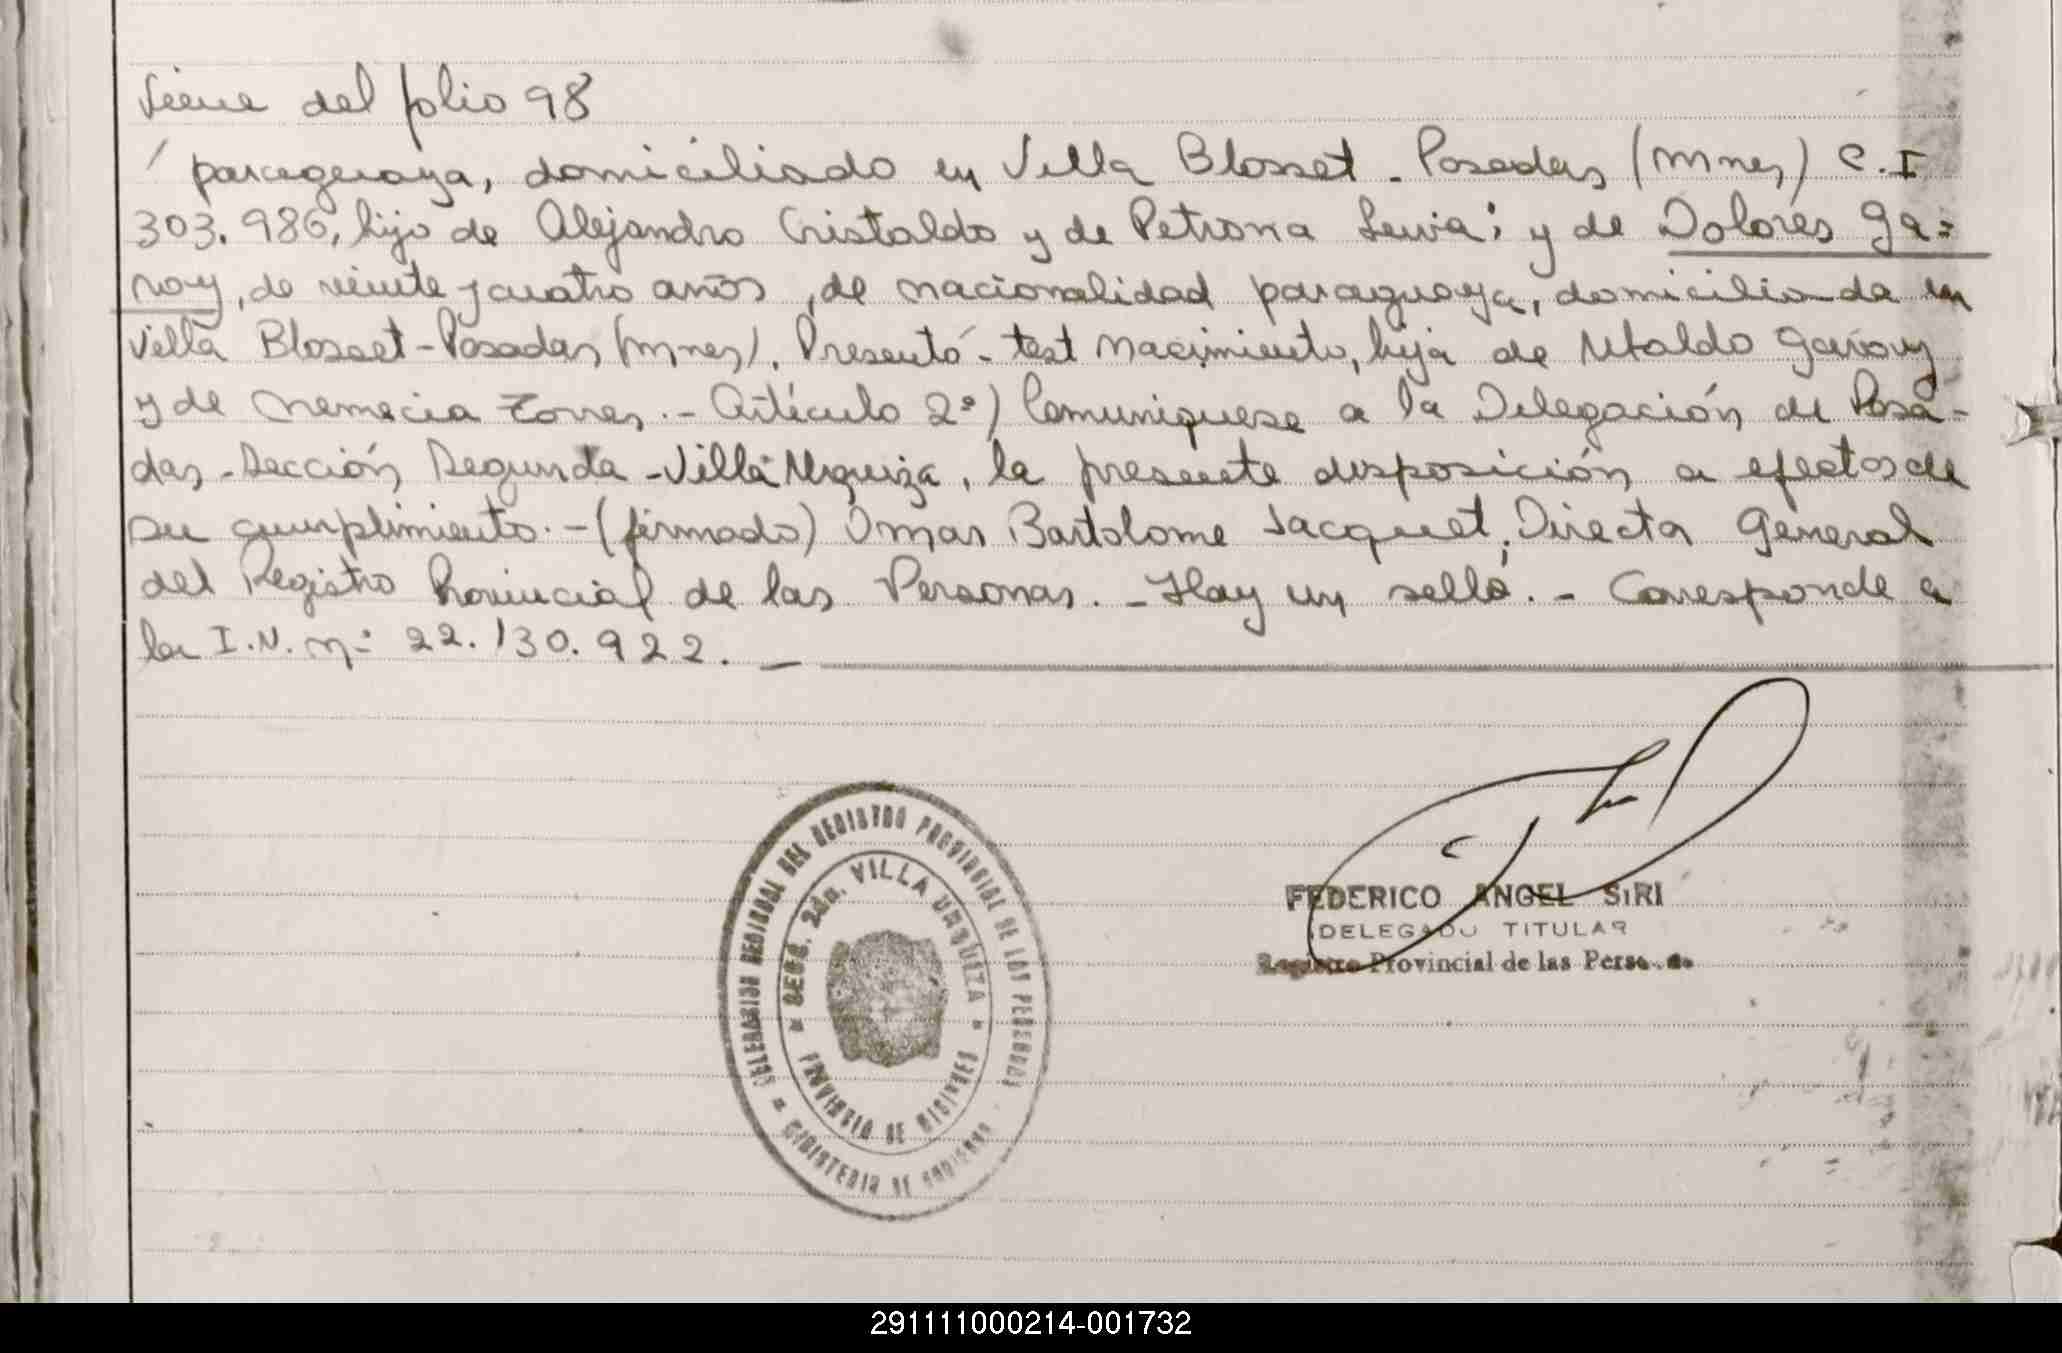 Viene del folio 98
/ paraguaya, domiciliado en Villa Blosset - Posadas (Mnes) C.I
303.986, hijo de Alejandro Cristaldo y de Petrona Leiva; y de Dolores Ga=
roy, de veinte y cuatro años, de nacionalidad paraguaya, domiciliada en
Villa Blosset - Posadas (Mnes). Presentó - test Nacimiento, hija de Ubaldo Garoy
y de Nemecia Torres. - Artículo 2º) Comuniquese a la Delegación de Posa-
das - Sección Segunda - Villa Urquiza, la presente disposición a efectos de
su cumplimiento. - (firmado) Omar Bartolome Jacquet, Director General
del Registro Provincial de las Personas. - Hay un sello. - Corresponde a
la I.N. nº 22.130.922. -
DEL REGISTRO PROVINCIAL DE LAS PERSONAS
SECC. 2da. VILLA URQUIZA
PROVINCIA DE MISIONES
MINISTERIO DE GOBIERNO
FEDERICO ANGEL SIRI
DELEGADO TITULAR
Registro Provincial de las Personas
291111000214-001732